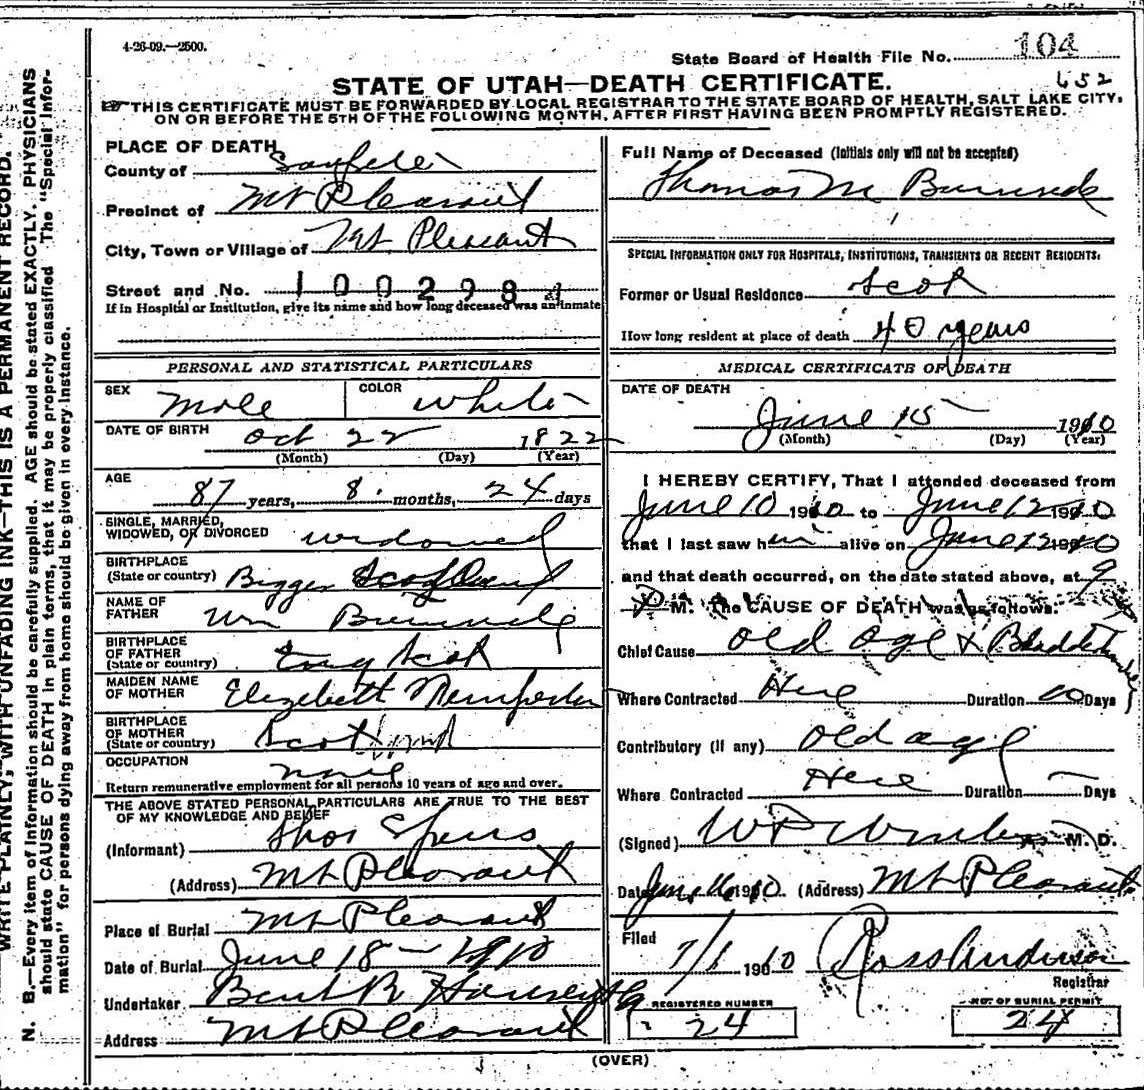 4-26-09.—2500.
State Board of Health File No. 104
STATE OF UTAH—DEATH CERTIFICATE. 652
THIS CERTIFICATE MUST BE FORWARDED BY LOCAL REGISTRAR TO THE STATE BOARD OF HEALTH, SALT LAKE CITY,
ON OR BEFORE THE 5TH OF THE FOLLOWING MONTH, AFTER FIRST HAVING BEEN PROMPTLY REGISTERED.
WRITE PLAINLY, WITH UNFADING INK—THIS IS A PERMANENT RECORD.
N. B.—Every item of information should be carefully supplied. AGE should be stated EXACTLY. PHYSICIANS
should state CAUSE OF DEATH in plain terms, that it may be properly classified. The "Special Infor-
mation" for persons dying away from home should be given in every instance.
PLACE OF DEATH
County of Sanpete
Precinct of Mt Pleasant
City, Town or Village of Mt. Pleasant
Street and No. 100298
If in Hospital or Institution, give its name and how long deceased was an inmate
PERSONAL AND STATISTICAL PARTICULARS
SEX Male COLOR White
DATE OF BIRTH Oct 22 1822
(Month) (Day) (Year)
AGE
87 years, 8 months, 24 days
SINGLE, MARRIED,
WIDOWED, OR DIVORCED widowed
BIRTHPLACE
(State or country) Bigger Scotland
NAME OF
FATHER Wm
BIRTHPLACE
OF FATHER
(State or country) Scot
MAIDEN NAME
OF MOTHER Elizebeth
BIRTHPLACE
OF MOTHER
(State or country) Scotland
OCCUPATION none
Return remunerative employment for all persons 10 years of age and over.
THE ABOVE STATED PERSONAL PARTICULARS ARE TRUE TO THE BEST
OF MY KNOWLEDGE AND BELIEF
(Informant) Thos
(Address) Mt Pleasant
Place of Burial Mt Pleasant
Date of Burial June 18 – 1910
Undertaker Bent R Hansen
Address Mt Pleasant
Full Name of Deceased (Initials only will not be accepted)
Thomas M
SPECIAL INFORMATION ONLY FOR HOSPITALS, INSTITUTIONS, TRANSIENTS OR RECENT RESIDENTS:
Former or Usual Residence Scot
How long resident at place of death 40 years
MEDICAL CERTIFICATE OF DEATH
DATE OF DEATH
June 15 1910
(Month) (Day) (Year)
I HEREBY CERTIFY, That I attended deceased from
June 10 1910 to June 12 1910
that I last saw him alive on June 12 1910
and that death occurred, on the date stated above, at 9
P M. The CAUSE OF DEATH was as follows:
Chief Cause Old age &
Where Contracted Here Duration Days
Contributory (If any) Old age
Where Contracted Here Duration — Days
(Signed) M. D.
Date June 16 1910. (Address) Mt Pleasant
Filed 7/1 1910 Ross Anderson
Registrar
REGISTERED NUMBER 24
NO. OF BURIAL PERMIT 24
(OVER)